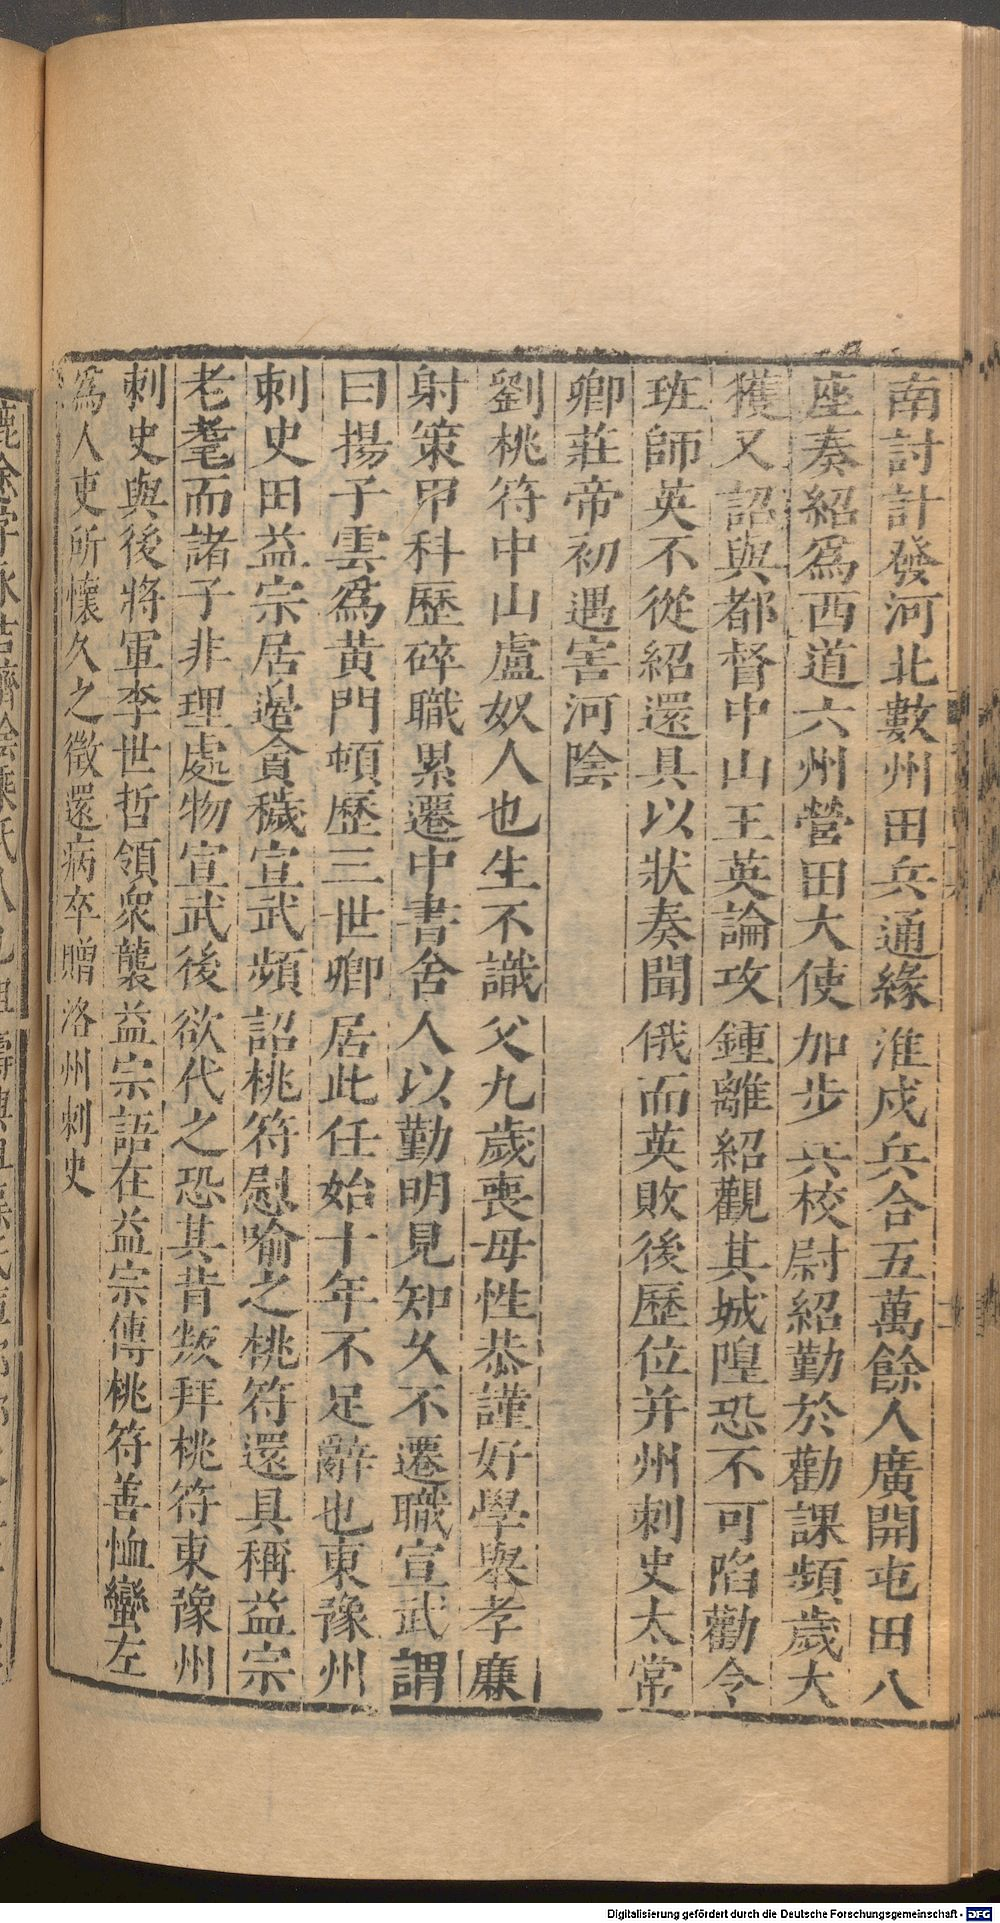 南討計發河北數州田兵通緣淮戍兵合五萬餘人廣開屯田八
座奏紹為西道六州營田大使加步兵校尉紹勤於勸課頻歲大
獲又詔與都督中山王英論攻鍾離紹觀其城隍恐不可陷勸令
班師英不從紹還具以狀奏聞俄而英敗後歷位并州刺史太常
卿莊帝初遇害河陰
劉桃符中山盧奴人也生不識父九歲喪母性恭謹好學舉孝廉
射策甲科歷碎職累遷中書舍人以勤明見知久不遷職宣武謂
曰揚子雲為黃門頓歷三世卿居此任始十年不足辭也東豫州
刺史田益宗居邊貪穢宣武頻詔桃符慰喻之桃符還具稱益宗
老耄而諸子非理處物宣武後欲代之恐其背叛拜桃符東豫州
刺史與後將軍李世哲領衆襲益宗語在益宗傳桃符善恤蠻左
為人吏所懷久之徵還病卒贈洛州刺史
Digitalisierung gefördert durch die Deutsche Forschungsgemeinschaft - DFG